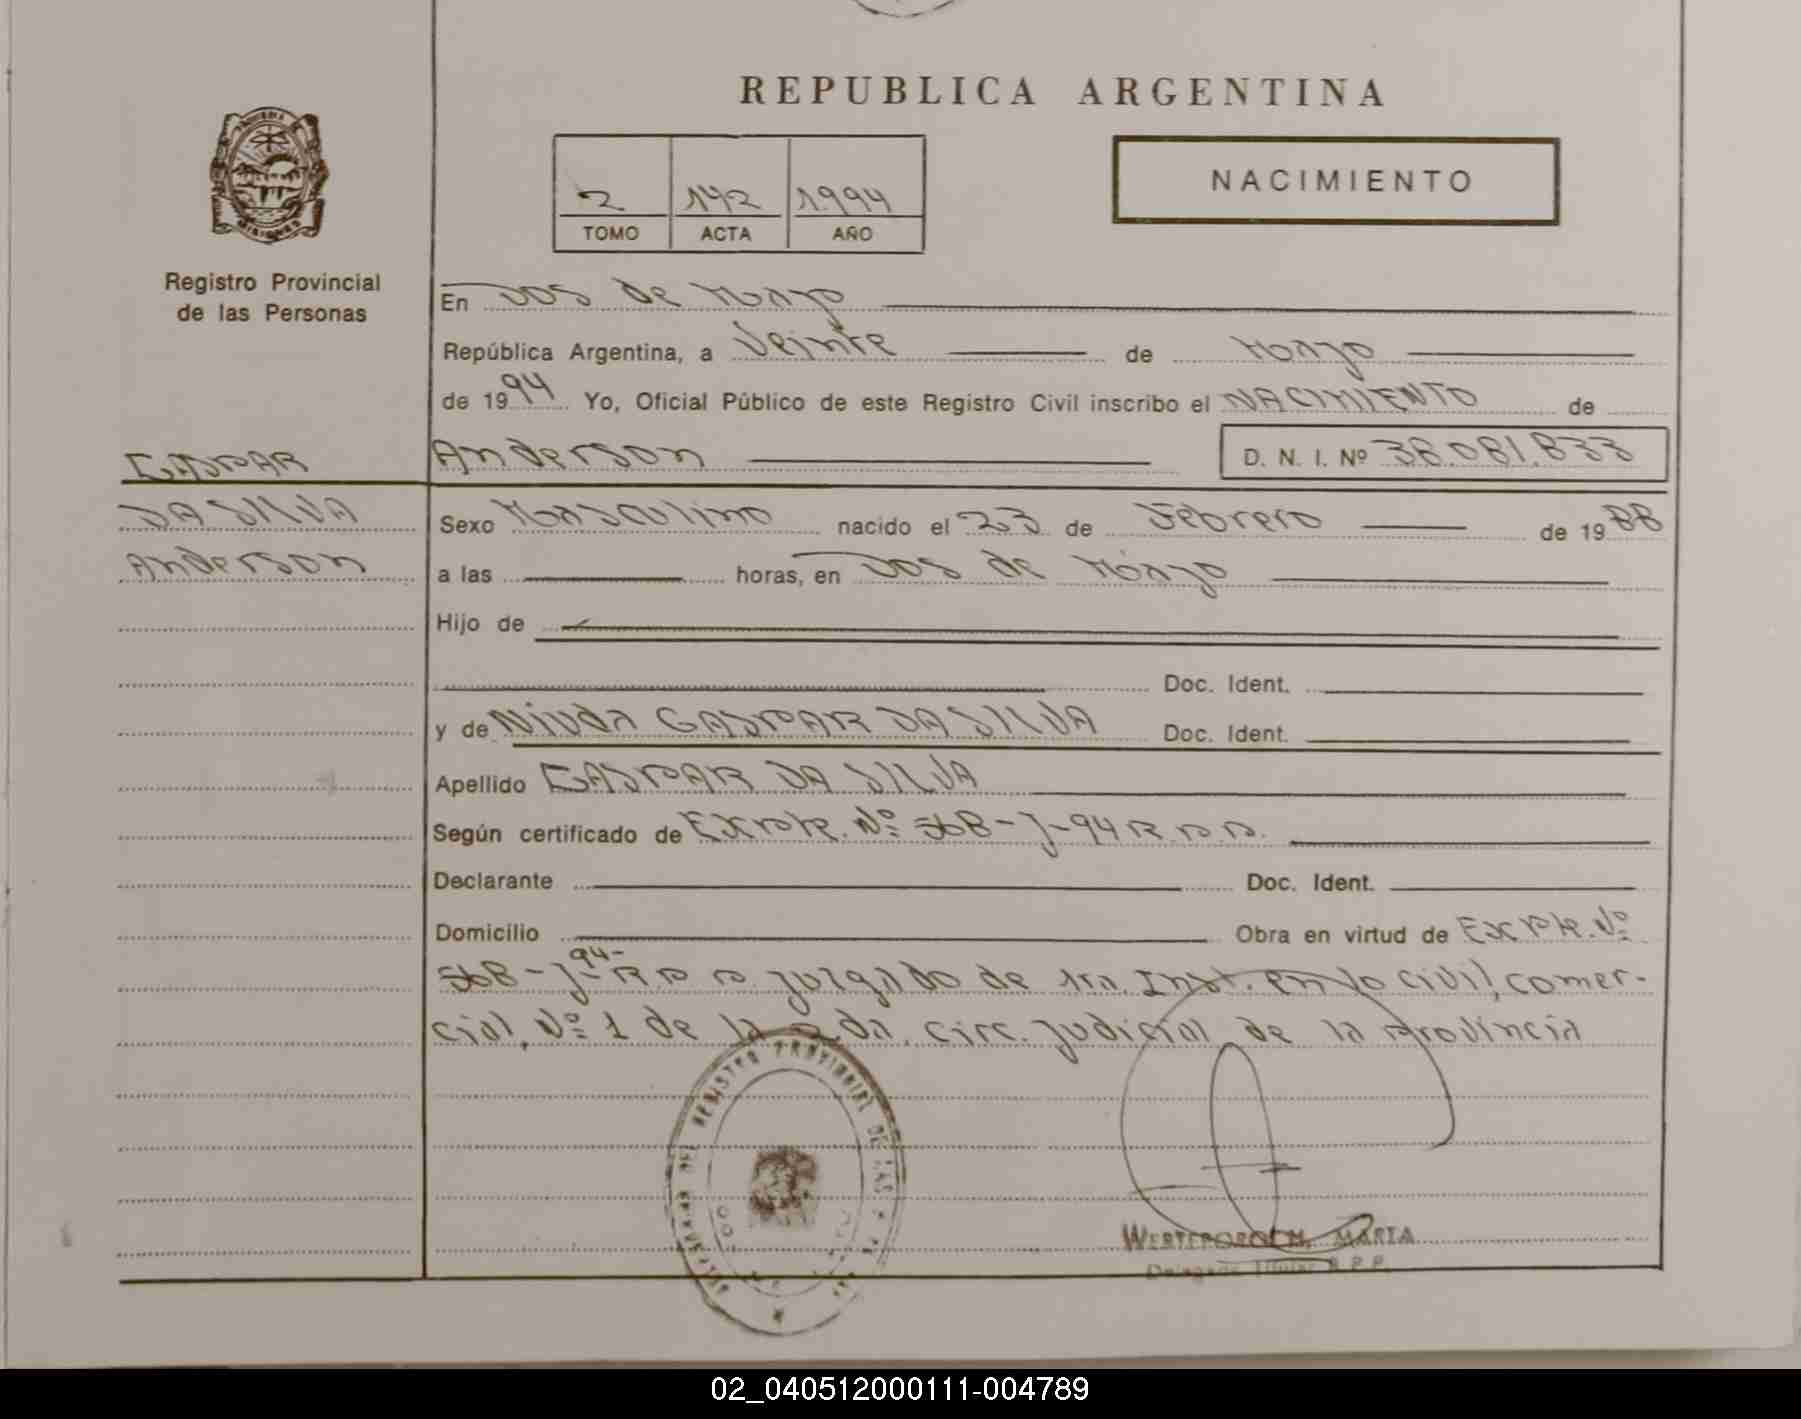 REPUBLICA ARGENTINA
2 142 1994
TOMO ACTA AÑO
NACIMIENTO
Registro Provincial
de las Personas
En Dos de Mayo
República Argentina, a Veinte de Mayo
de 1994 Yo, Oficial Público de este Registro Civil inscribo el NACIMIENTO de
GASPAR
DA SILVA
Anderson
Anderson D. N. I. Nº 38.081.833
Sexo Masculino nacido el 23 de Febrero de 1988
a las horas, en Dos de Mayo
Hijo de
Doc. Ident.
y de Nivda GASPAR DA SILVA Doc. Ident.
Apellido GASPAR DA SILVA
Según certificado de Expte. Nº 568-J-94 R.P.P.
Declarante Doc. Ident.
Domicilio Obra en virtud de Expte. Nº
568-J-94- R.P.P. Juzgado de 1ra. Inst. en lo civil, comer-
cial, Nº 1 de la 2da. circ. Judicial de la Provincia
DEL REGISTRO PROVINCIAL DE LAS
MARIA
Titular R.P.P.
02_040512000111-004789